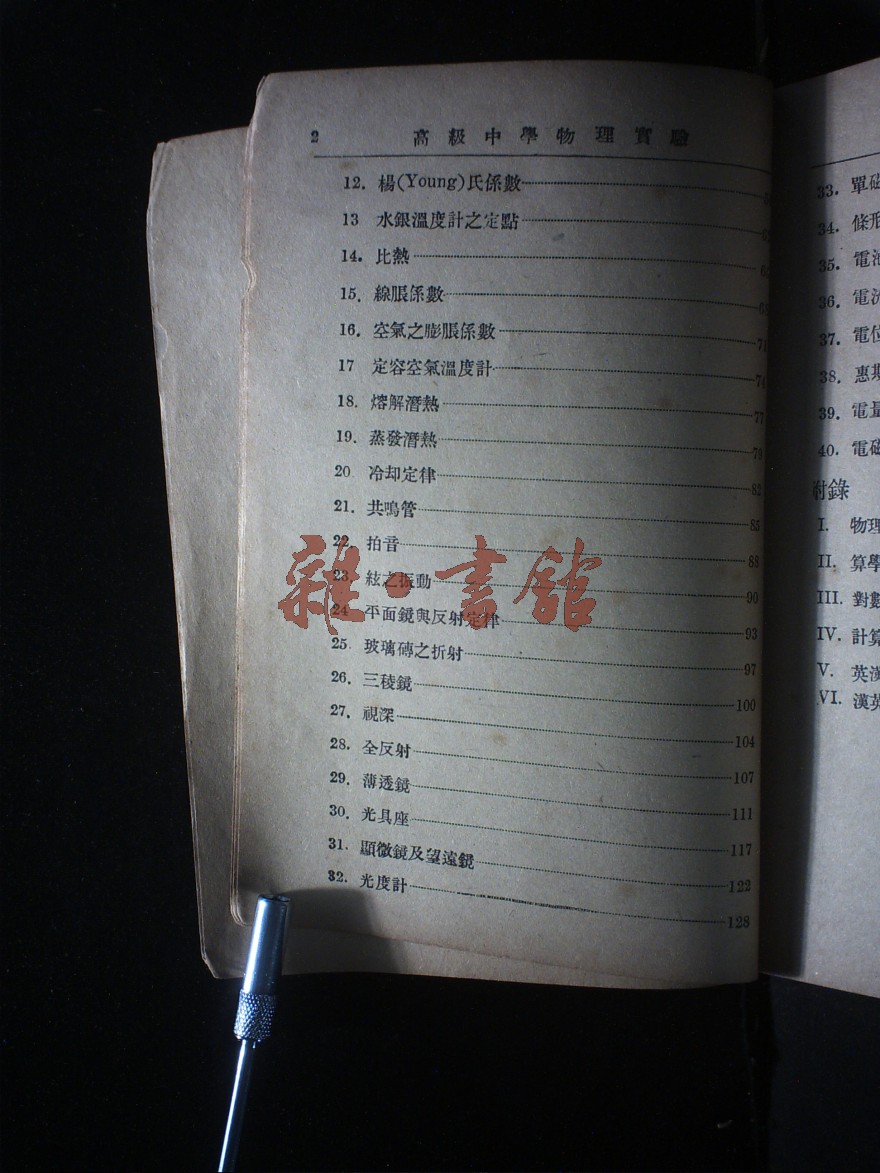 2 高級中學物理實驗
12. 楊(Young)氏係數
13 水銀溫度計之定點
14. 比熱
15. 線脹係數
16. 空氣之膨脹係數 71
17 定容空氣溫度計 74
18. 熔解潛熱 77
19. 蒸發潛熱 79
20 冷却定律 82
21. 共鳴管 85
22. 拍音 88
23. 絃之振動 90
24. 平面鏡與反射定律 93
25. 玻璃磚之折射 97
26. 三稜鏡 100
27. 視深 104
28. 全反射 107
29. 薄透鏡 111
30. 光具座 117
31. 顯微鏡及望遠鏡 122
32. 光度計 128
雜·書館
33. 單磁
34. 條形
35. 電池
36. 電流
37. 電位
38. 惠斯
39. 電量
40. 電磁
附錄
I. 物理
II. 算學
III. 對數
IV. 計算
V. 英漢
VI. 漢英